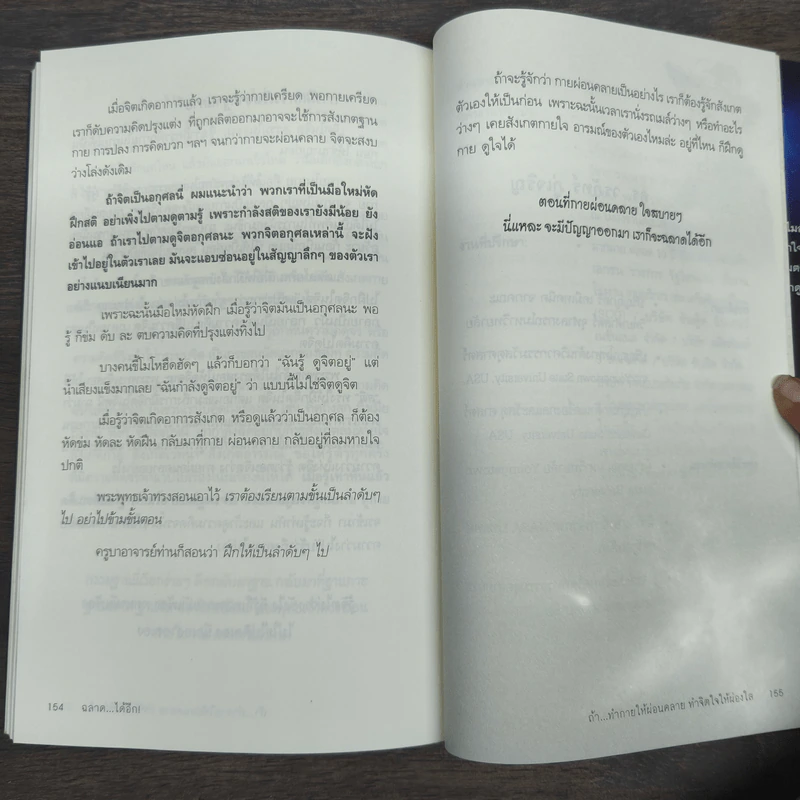 เมื่อจิตเกิดอาการแล้ว เราจะรู้ว่ากายเครียด พอกายเครียด
เราก็ดับความคิดปรุงแต่ง ที่ถูกผลิตออกมาอาจจะใช้การสังเกตฐาน
กาย การปลง การคิดบวก ฯลฯ จนกว่ากายจะผ่อนคลาย จิตจะสงบ
ว่างโล่งดังเดิม
ถ้าจิตเป็นอกุศลนี่ ผมแนะนำว่า พวกเราที่เป็นมือใหม่หัด
ฝึกสติ อย่าเพิ่งไปตามดูตามรู้ เพราะกำลังสติของเรายังมีน้อย ยัง
อ่อนแอ ถ้าเราไปตามดูจิตอกุศลนะ พวกจิตอกุศลเหล่านี้ จะฝัง
เข้าไปอยู่ในตัวเราเลย มันจะแอบซ่อนอยู่ในสัญญาลึกๆ ของตัวเรา
อย่างแนบเนียนมาก
เพราะฉะนั้นมือใหม่หัดฝึก เมื่อรู้ว่าจิตมันเป็นอกุศลนะ พอ
รู้ ก็ข่ม ดับ ละ ตบความคิดที่ปรุงแต่งทิ้งไป
บางคนขี้โมโหฮึดฮัดๆ แล้วก็บอกว่า “ฉันรู้ ดูจิตอยู่” แต่
น้ำเสียงแข็งมากเลย “ฉันกำลังดูจิตอยู่” ว่า แบบนี้ไม่ใช่จิตดูจิต
เมื่อรู้ว่าจิตเกิดอาการสังเกต หรือดูแล้วว่าเป็นอกุศล ก็ต้อง
หัดข่ม หัดละ หัดฝืน กลับมาที่กาย ผ่อนคลาย กลับอยู่ที่ลมหายใจ
ปกติ
พระพุทธเจ้าทรงสอนเอาไว้ เราต้องเรียนตามขั้นเป็นลำดับๆ
ไป อย่าไปข้ามขั้นตอน
ครูบาอาจารย์ท่านก็สอนว่า ฝึกให้เป็นลำดับๆ ไป
164 ฉลาด...ได้อีก!
ถ้าจะรู้จักว่า กายผ่อนคลายเป็นอย่างไร เราก็ต้องรู้จักสังเกต
ตัวเองให้เป็นก่อน เพราะฉะนั้นเวลาเรานั่งรถเมล์ว่างๆ หรือทำอะไร
ว่างๆ เคยสังเกตกายใจ อารมณ์ของตัวเองไหมล่ะ อยู่ที่ไหน ก็ฝึกดู
กาย ดูใจได้
ตอนที่กายผ่อนคลาย ใจสบายๆ
นี่แหละ จะมีปัญญาออกมา เราก็จะฉลาดได้อีก
ถ้า...ทำกายให้ผ่อนคลาย ทำจิตใจให้ผ่องใส 165